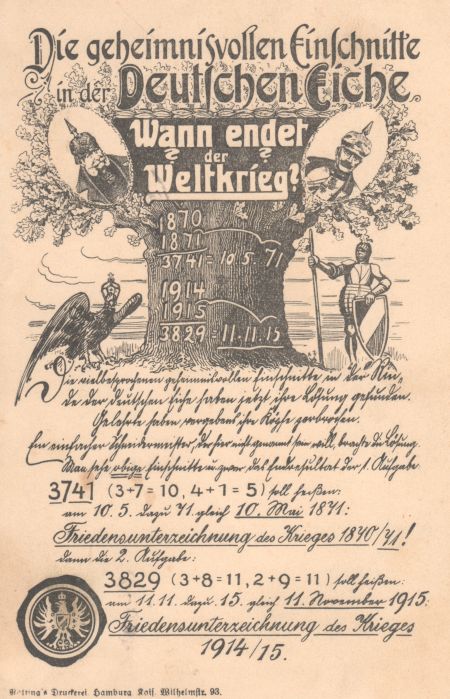 Die geheimnisvollen Einschnitte
in der Deutschen Eiche.
Wann endet
der
Weltkrieg?
1870
1871
3741 = 10.5. 71
1914
1915
3829 = 11.11.15
Die vielbesprochenen geheimnisvollen Einschnitte in der Rin-
de der deutschen Eiche haben jetzt ihre Lösung gefunden.
Gelehrte haben vergebens ihre Köpfe zerbrochen.
Ein einfacher Schneidermeister, der hier nicht genannt sein will, brachte die Lösung.
Man sehe obige Einschnitte u. zwar das Endresultat der 1. Aufgabe
3741 (3+7=10, 4+1=5) soll heißen:
am 10.5. dazu 71 gleich 10. Mai 1871:
Friedensunterzeichnung des Krieges 1870/71!
dann die 2. Aufgabe:
3829 (3+8=11, 2+9=11) soll heißen:
am 11.11. dazu 15. gleich 11. November 1915:
Friedensunterzeichnung des Krieges
1914/15.
Druckerei Hamburg Kais. Wilhelmstr. 93.